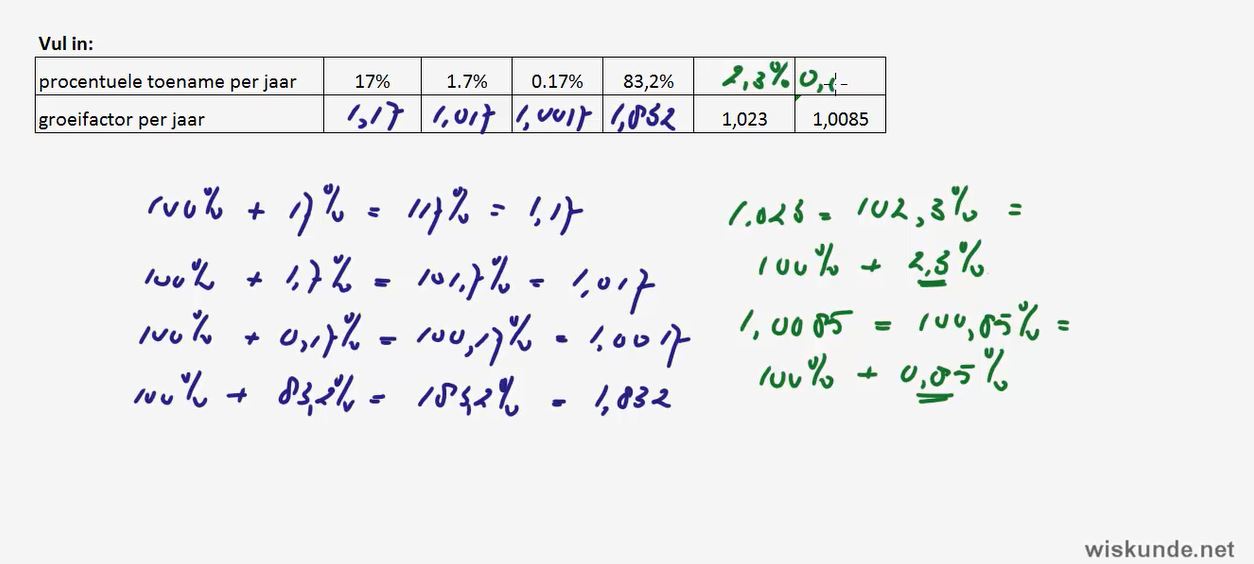 Vul in:
procentuele toename per jaar 17% 1.7% 0.17% 83,2% 2,3% 0,
groeifactor per jaar 1,17 1,017 1,0017 1,832 1,023 1,0085
100% + 17% = 117% = 1,17
100% + 1,7% = 101,7% = 1,017
100% + 0,17% = 100,17% = 1.0017
100% + 83,2% = 183,2% = 1,832
1.023 = 102,3% =
100% + 2,3%
1,0085 = 100,85% =
100% + 0,85%
wiskunde.net